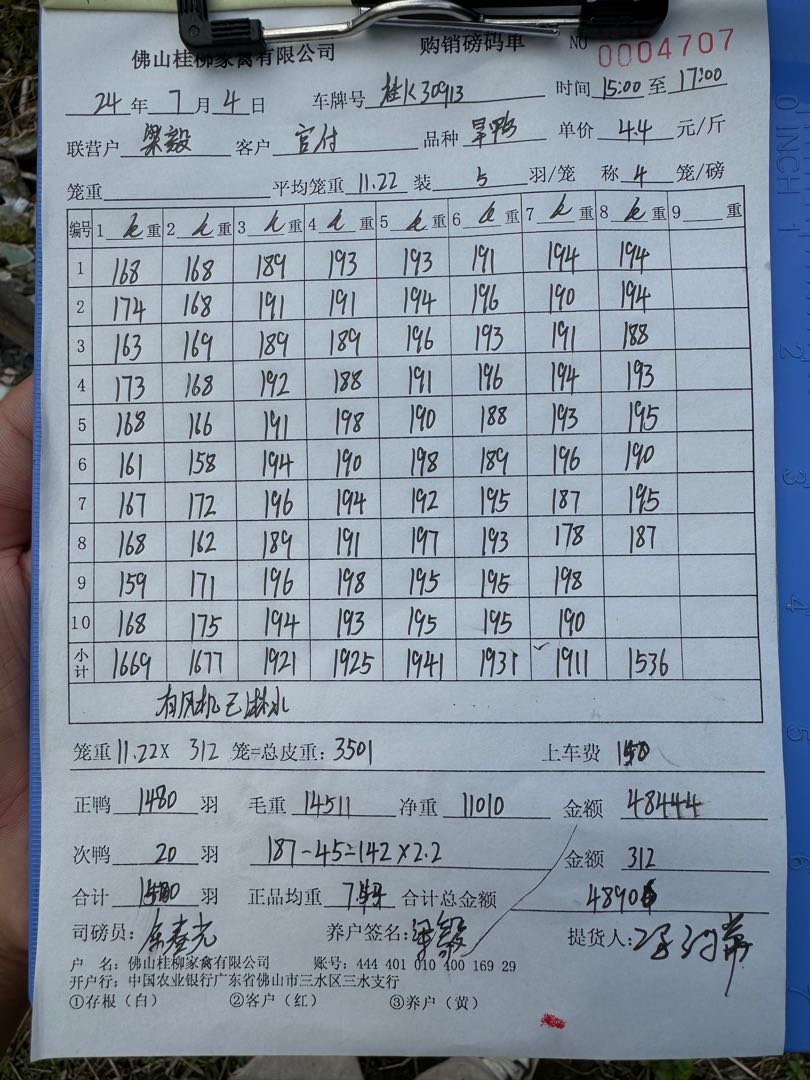 佛山桂柳家禽有限公司 购销磅码单 NO 0004707
24 年 7 月 4 日 车牌号 桂K30913 时间 15:00 至 17:00
联营户 梁毅 客户 官付 品种 旱鸭 单价 4.4 元/斤
笼重 平均笼重 11.22 装 5 羽/笼 称 4 笼/磅
编号 1 重 2 重 3 重 4 重 5 重 6 重 7 重 8 重 9 重
1 168 168 189 193 193 191 194 194
2 174 168 191 191 194 196 190 194
3 163 169 189 189 196 193 191 188
4 173 168 192 188 191 196 194 193
5 168 166 191 198 190 188 193 195
6 161 158 194 190 198 189 196 190
7 167 172 196 194 192 195 187 195
8 168 162 189 191 197 193 178 187
9 159 171 196 198 195 195 198
10 168 175 194 193 195 195 190
小计 1669 1677 1921 1925 1941 1931 1911 1536
有风机已淋水
笼重 11.22X 312 笼=总皮重: 3501 上车费 150
正鸭 1480 羽 毛重 14511 净重 11010 金额 48444
次鸭 20 羽 187-45=142×2.2 金额 312
合计 1500 羽 正品均重 合计总金额 48906
司磅员: 养户签名: 梁毅 提货人:
户 名: 佛山桂柳家禽有限公司 账号: 444 401 010 400 169 29
开户行: 中国农业银行广东省佛山市三水区三水支行
①存根(白) ②客户(红) ③养户(黄)